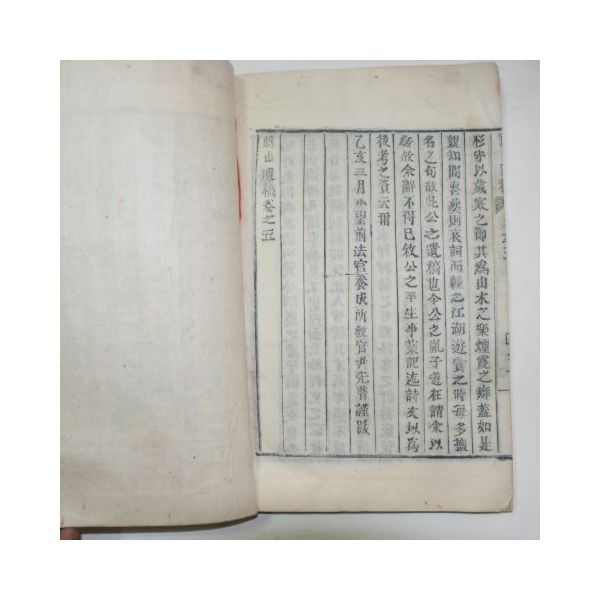 杉守以歲寒之節其爲山水之樂煙霞之癖蓋如是
親知間喪葬則哀詞而輓之江湖遊賞之時每多擅
名之句故此公之遺稿也今公之胤子道在請余以
跋故余辭不得已敘公之平生事業記述詩文以爲
後考之資云爾
乙亥三月小望前法官養成所敎官尹先普謹跋
山遺稿卷之五